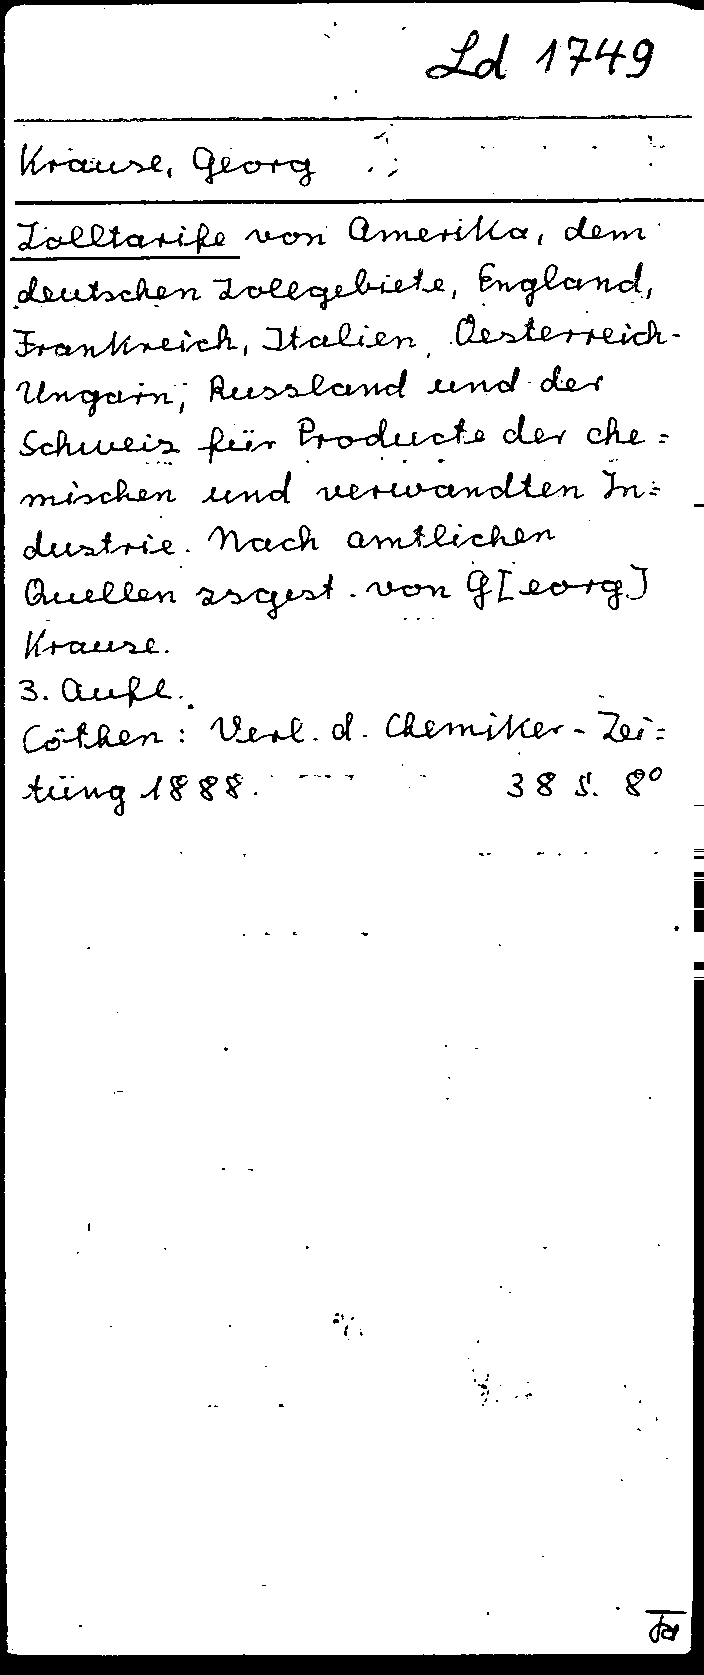 Ld 1749
Krause, Georg
Zolltarife von Amerika, dem
deutschen Zollgebiete, England,
Frankreich, Italien, Oesterreich-
Ungarn, Russland und der
Schweiz für Producte der che=
mischen und verwandten In=
dustrie. Nach amtlichen
Quellen zsgest. von G[eorg]
Krause.
3. Aufl.
Cöthen: Verl. d. Chemiker-Zei=
tung 1888. 38 S. 8°